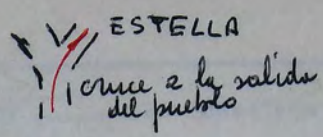 ESTELLA
cruce a la salida
del pueblo